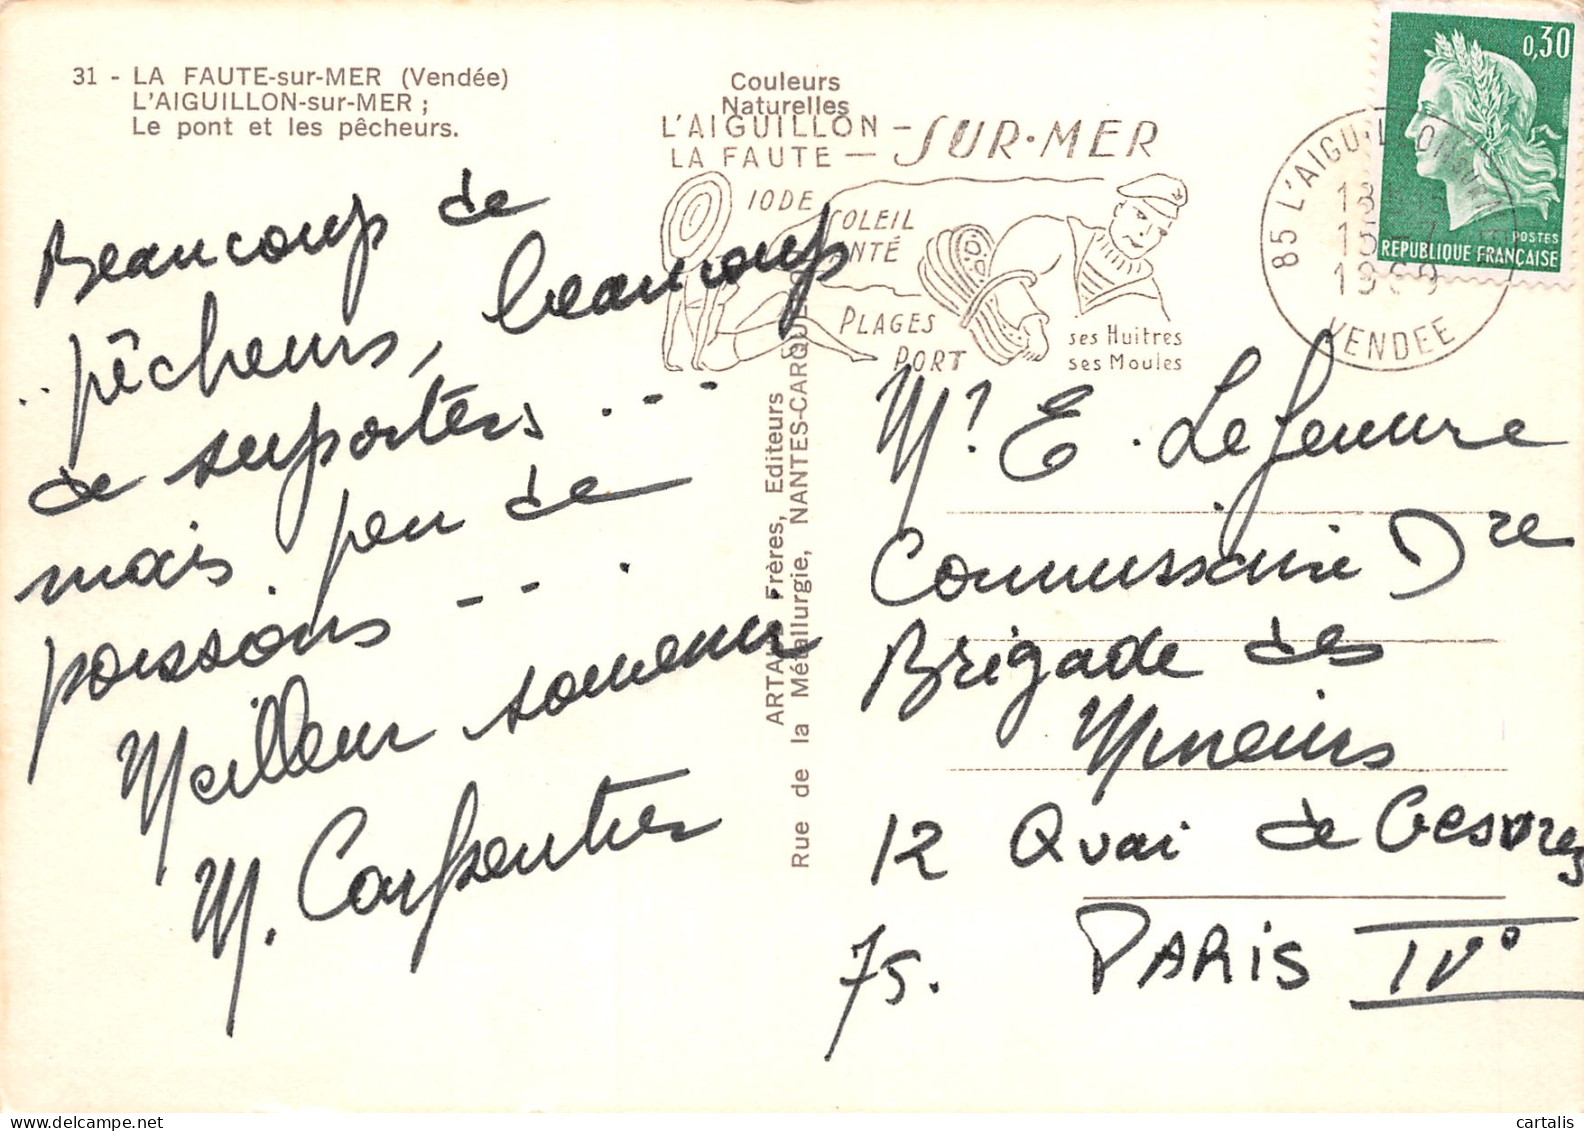 31 - LA FAUTE-sur-MER (Vendée)
L'AIGUILLON-sur-MER ;
Le pont et les pêcheurs.
Couleurs
Naturelles
L'AIGUILLON - SUR-MER
LA FAUTE -
IODE
SOLEIL
SANTÉ
PLAGES
PORT
ses Huitres
ses Moules
85 L'AIGUILLON SUR
1969
VENDEE
0,30
POSTES
REPUBLIQUE FRANÇAISE
Beaucoup de
.. pêcheurs, beaucoup
de suporters ...
mais peu de
poissons - - .
Meilleur souvenir
M. Carpentier
ARTAUD Frères, Editeurs
Rue de la Métallurgie, NANTES-CARQUEFOU
Mr E. Lefeuvre
Commissaire Dre
Brigade des
Mineurs
12 Quai de Gesvres
75. PARIS IV°
cartalis